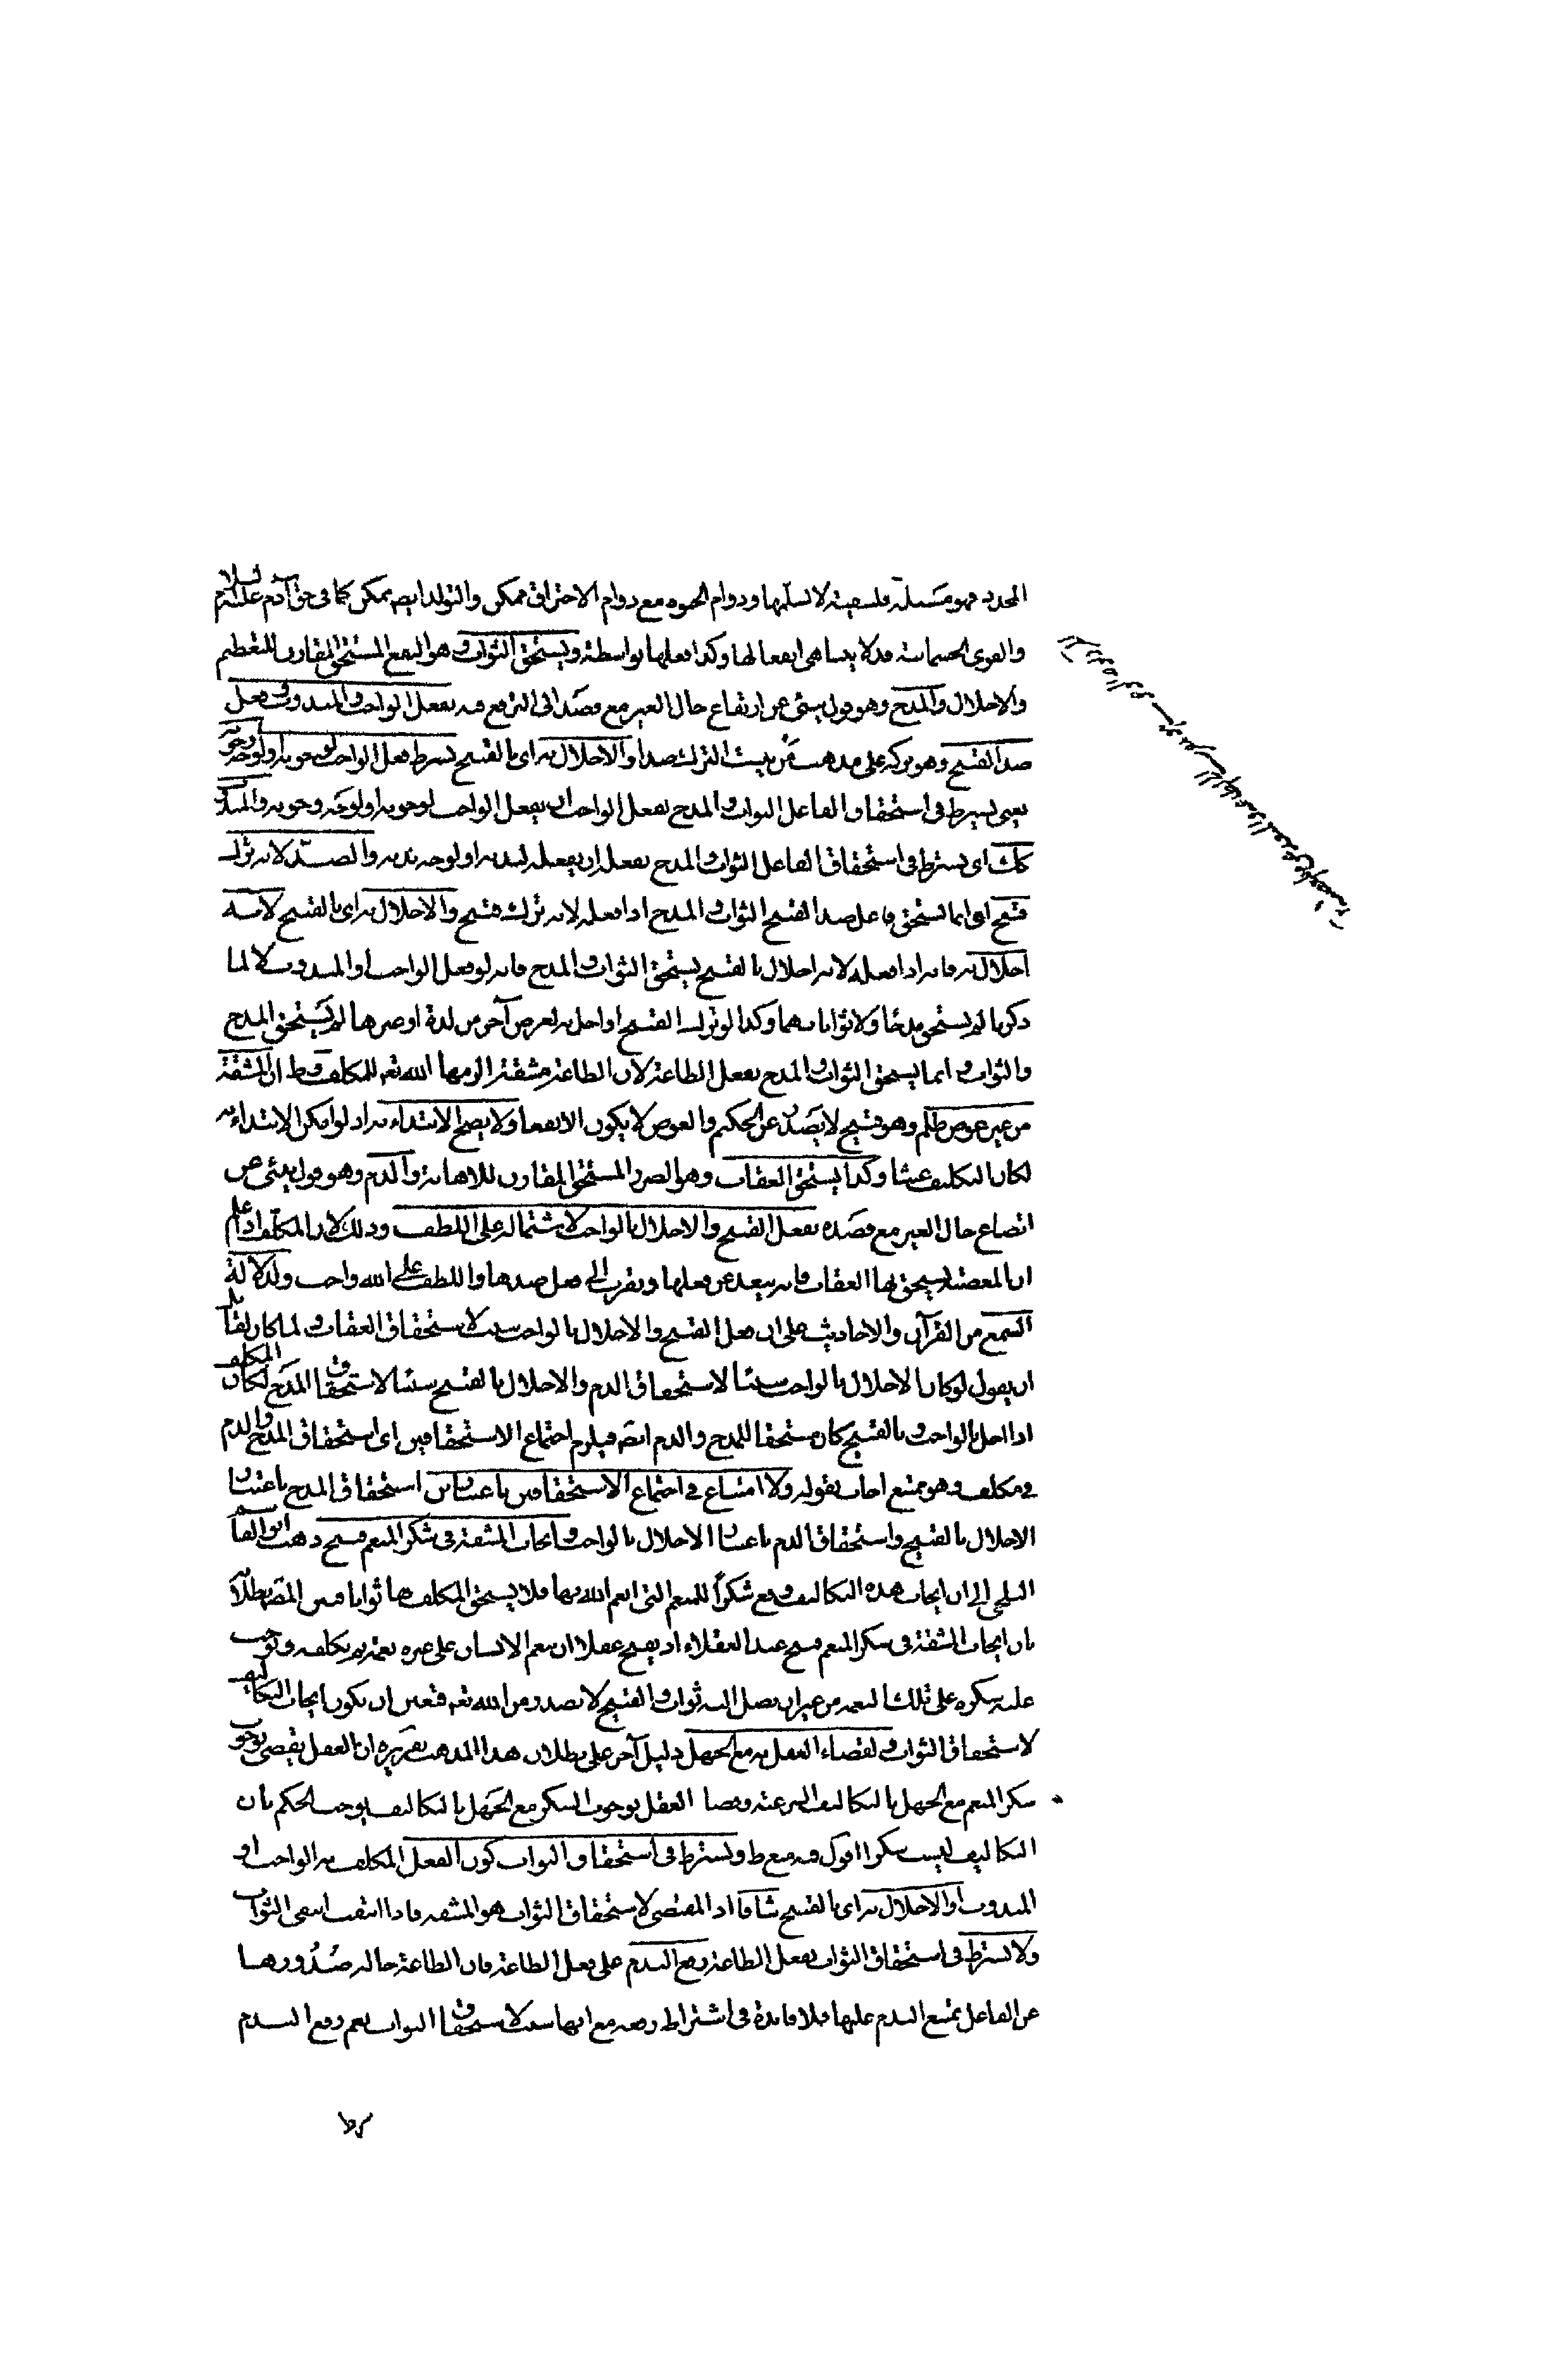 المحدد فهو مسئلة فلسفية لا نسلمها ودوام الحيوة مع دوام الاحتراق ممكن والتولد ايضا ممكن كما في حق آدم عليه السلام
والقوى الجسمانية قد لا يتناهى انفعالها وكذا فعلها بواسطة ويستحق الثواب وهو النفع المستحق المقارن للتعظيم
والاجلال والمدح وهو قول ينبئ عن ارتفاع حال الغير مع قصد الى الترفع فيه بفعل الواجب والمندوب وفعل
ضد القبيح وهو تركه على مذهب من يثبت الترك ضدا والاخلال به اى بالقبيح بشرط فعل الواجب لوجوبه او لوجه وجوبه
يعنى يشترط في استحقاق الفاعل الثواب والمدح بفعل الواجب ان يفعل الواجب لوجوبه او لوجه وجوبه والمندوب
كك اى يشترط في استحقاق الفاعل الثواب والمدح بفعله ان يفعله لندبه او لوجه ندبه والضد لانه ترك
قبيح اى انما يستحق فاعل ضد القبيح الثواب والمدح اذا فعله لانه ترك قبيح والاخلال به اى بالقبيح لانه
اخلال به فانه اذا فعله لانه اخلال بالقبيح يستحق الثواب والمدح فانه لو فعل الواجب او المندوب لا لما
ذكرنا لم يستحق مدحا ولا ثوابا بهما وكذا لو ترك القبيح او اخل به لغرض آخر من لذة او غيرها لم يستحق المدح
والثواب وانما يستحق الثواب والمدح بفعل الطاعة لان الطاعة مشقة الزمها الله تعه للمكلف وظ ان المشقة
من غير عوض ظلم وهو قبيح لا يصدر عن الحكيم والعوض لا يكون الا نفعا ولا يصح الابتداء به اذ لو امكن الابتداء به
لكان التكليف عبثا وكذا يستحق العقاب وهو الضرر المستحق المقارن للاهانة والذم وهو قول ينبئ عن
اتضاع حال الغير مع قصده بفعل القبيح والاخلال بالواجب لاشتماله على اللطف وذلك لان المكلف اذا علم
ان المعصية يستحق بها العقاب فانه يبعد عن فعلها ويقرب الى فعل ضدها واللطف على الله واجب ولدلالة
السمع من القرآن والاحاديث على ان فعل القبيح والاخلال بالواجب سبب لاستحقاق العقاب ولما كان لقائل
ان يقول لو كان الاخلال بالواجب سببا لاستحقاق الذم والاخلال بالقبيح سببا لاستحقاق المدح لكان المكلف
اذا اخل بالواجب وبالقبيح كان مستحقا للمدح والذم ايضا فيلزم اجتماع الاستحقاقين اى استحقاق المدح والذم
في مكلف وهو ممتنع اجاب بقوله ولا امتناع في اجتماع الاستحقاقين باعتبارين استحقاق المدح باعتبار
الاخلال بالقبيح واستحقاق الذم باعتبار الاخلال بالواجب وايجاب المشقة في شكر المنعم قبيح ذهب ابو القاسم
البلخي الى ان ايجاب هذه التكاليف وقع شكرا للنعم التى انعم الله بها فلا يستحق المكلف بها ثوابا فبين المصه بطلانه
بان ايجاب المشقة في شكر المنعم قبيح عند العقلاء اذ يقبح عقلا ان ينعم الانسان على غيره بنعمة ثم يكلفه ويوجب
عليه شكره على تلك النعمه من غير ان يصل اليه ثواب والقبيح لا يصدر من الله تعه فتعين ان يكون ايجاب التكاليف
لاستحقاق الثواب ولقضاء العقل به مع الجهل دليل آخر على بطلان هذا المذهب تقريره ان العقل يقضى بوجوب
شكر المنعم مع الجهل بالتكاليف الشرعية وقضاء العقل بوجوب الشكر مع الجهل بالتكاليف يوجب الحكم بان
التكاليف ليست شكرا اقول فيه منع ظ ويشترط في استحقاق الثواب كون الفعل المكلف به الواجب او
المندوب او الاخلال به اى بالقبيح شاقا اذ المقتضى لاستحقاق الثواب هو المشقه فاذا انتفت انتفى الثواب
ولا يشترط في استحقاق الثواب بفعل الطاعة رفع الندم على فعل الطاعة فان الطاعة حالة صدورها
عن الفاعل يمتنع الندم عليها فلا فائدة في اشتراط رفعه مع انها سبب لاستحقاق الثواب نعم رفع الندم